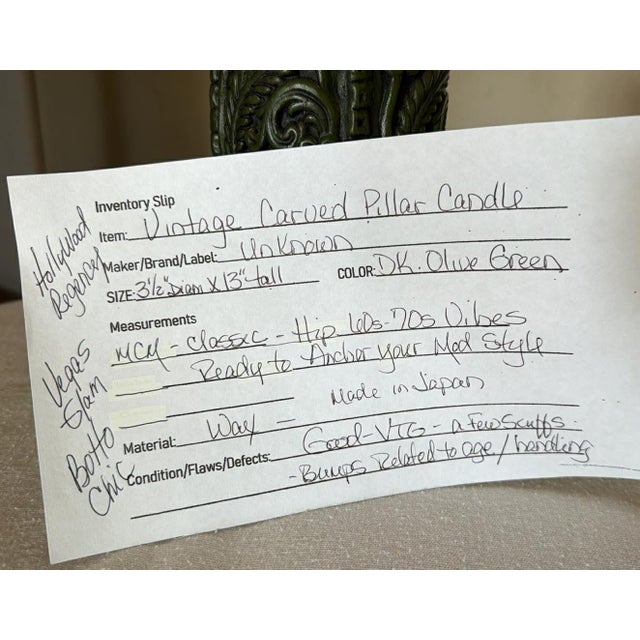 Inventory Slip
Item: Vintage Carved Pillar Candle
Maker/Brand/Label: Unknown
SIZE: 3½" Diam X 13" tall COLOR: DK. Olive Green
Measurements
MCM - Classic - Hip 60s-70s Vibes
Ready to Anchor your Mod Style
Made in Japan
Material: Wax -
Condition/Flaws/Defects: Good - VTG - a Few Scuffs -
- Bumps Related to age/handling
Hollywood
Regency
Vegas
Glam
BoHo
Chic